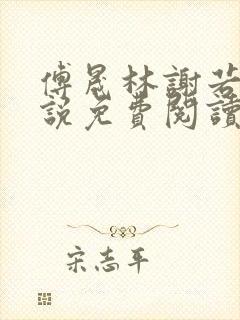 傅晟林謝若
說免費閱讀
宋志平